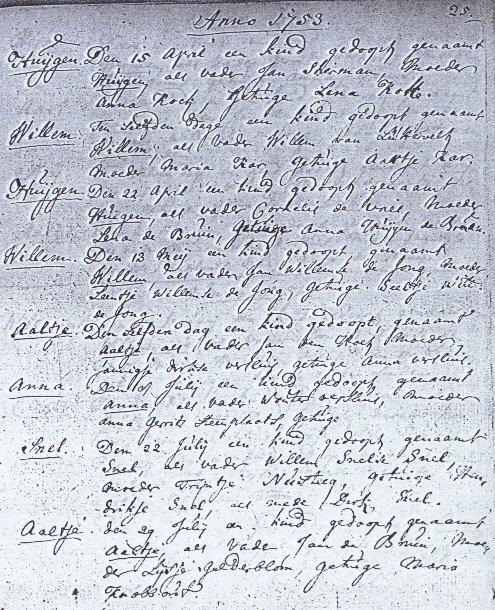 25.
Anno 1753.
Huijgen. Den 15 April een kind gedoopt genaamt
Huijgen, als vader Jan Moeder
Anna Kock, getuige Lena Kolk.
Willem. Ten Selfden dage een kind gedoopt genaamt
Willem, als vader Willem van
Moeder Maria Kar, getuige Aaltje Kar.
Huijgen. Den 22 April een kind gedoopt, genaamt
Huijgen, als vader Cornelis de Moeder
Lena de Bruin, getuige Anna Huijgen de Bruin.
Willem. Den 13 Meij een kind gedoopt, genaamt
Willem, als vader Jan Willemse de Jong, Moeder
Willemse de Jong, getuige Seeltje
de Jong.
Aaltje. Den Selfden Dag een kind gedoopt, genaamt
Aaltje, als vader Jan den Moeder
Jannigje Dirkse versluis, getuige Anna versluis.
Anna Den Julij een kind gedoopt genaamt
Anna, als vader Wouter versluis, Moeder
Anna Gerrits getuige
Snel. Den 22 Julij een kind gedoopt genaamt
Snel, als vader Willem Snel,
Moeder Trijntje getuige
drikje Snel, als mede Dirk Snel.
Aaltje. den 29 Julij een kind gedoopt genaamt
Aaltje, als vader Jan de Bruin, Moe
der Lijsje Gelderblom, getuige Maria
Knobbout